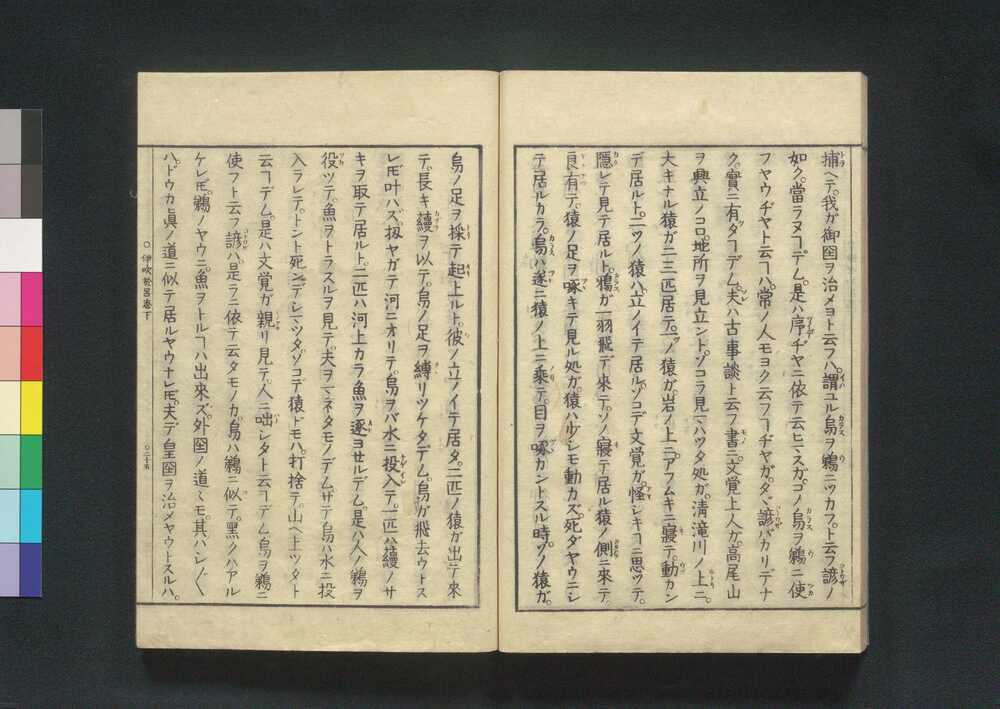 捕ヘテ。我ガ御国ヲ治メヨト云フハ。謂ユル烏ヲ鵜ニツカフ。ト云フ諺ノ
如ク。當ラヌヿデム。是ハ序ヂヤニ依テ云ヒマスガ。コノ烏ヲ鵜ニ使
フヤウヂヤト云フヿハ。常ノ人モヨク云フヿヂヤガ。タヾ諺バカリデナ
ク。實ニ有ツタヿデム。夫ハ古事談ト云フ書ニ。文覚上人ガ。高尾山
ヲ興立ノコロ。地所ヲ見立ントゾコラ見マハツタ処ガ。清滝川ノ上ニ。
大キナル猿ガ二三匹居テ。一ツノ猿ガ。岩ノ上ニアフムキニ寢テ。動カン
デ居ルト。二ツノ猿ハ立ノイテ居ル。ソコデ文覚ガ。怪シキヿニ思ツテ。
隱レテ見テ居ルト。鴉ガ一羽飛デ來テ。ソノ寢テ居ル猿ノ側ニ來テ。
良有テ。猿ノ足ヲ啄キテ見ル処ガ。猿ハ少シモ動カズ。死ダヤウニシ
テ居ルカラ。烏ハ遂ニ猿ノ上ニ乗テ。目ヲ啄カントスル時。ソノ猿ガ。
烏ノ足ヲ採テ起上ルト。彼ノ立ノイテ居タ。二匹ノ猿ガ出テ來
テ。長キ蘰ヲ以テ。烏ノ足ヲ縛リツケタデム。烏ガ飛去ウトス
レ𪜈叶ハズ。扨ヤガテ河ニオリテ。烏ヲバ水ニ投入テ。一匹ハ蘰ノサ
キヲ取テ居ルト。二匹ハ河上カラ魚ヲ逐ヨセルデム。是ハ人ノ鵜ヲ
役ツテ。魚ヲトラスルヲ見テ。夫ヲマネタモノデム。サテ烏ハ水ニ投
入ラレテ。トント死ンデシマツタ。ソコデ猿ドモハ。打捨テ。山ヘ上ツタト
云ヿデム。是ハ文覚ガ親リ見テ。人ニ咄シタト云ヿデム。烏ヲ鵜ニ
使フト云フ諺ハ。是ラニ依テ云タモノカ。烏ハ鵜ニ似テ。黑クハアル
ケレ𪜈。鵜ノヤウニ。魚ヲトルヿハ出來ズ。外国ノ道々モ。其ハシ〴〵
ハ。ドウカ眞ノ道ニ似テ居ルヤウナレ𪜈。夫デ皇国ヲ治メヤウトスルハ。
○伊吹於呂志下
○二十五